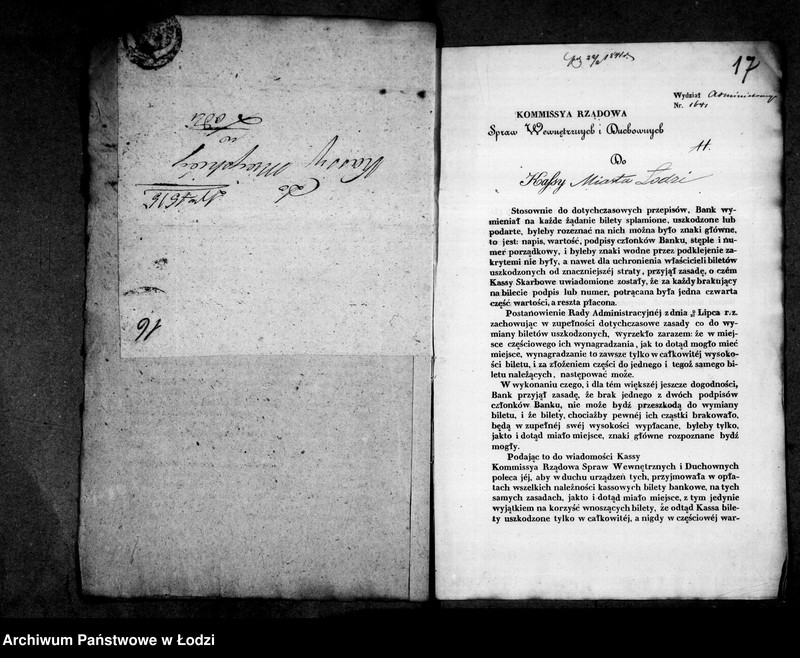 Do
Kassy Mieyskiéy
w
Łodzi
16
17
Wydział Administracyjny
Nr. 1641
KOMMISSYA RZĄDOWA
Spraw Wewnętrznych i Duchownych
Do
Kassy Miasta Łodzi
Stosownie do dotychczasowych przepisów, Bank wy-
mieniał na każde żądanie bilety splamione, uszkodzone lub
podarte, byleby rozeznać na nich można było znaki główne,
to jest: napis, wartość, podpisy członków Banku, stęple i nu-
mer porządkowy, i byleby znaki wodne przez podklejenie za-
krytemi nie były, a nawet dla uchronienia właścicieli biletów
uszkodzonych od znaczniejszéj straty, przyjął zasadę, o czém
Kassy Skarbowe uwiadomione zostały, że za każdy brakujący
na bilecie podpis lub numer, potrącana była jedna czwarta
część wartości, a reszta płacona.
Postanowienie Rady Administracyjnéj z dnia Lipca r. z.
zachowując w zupełności dotychczasowe zasady co do wy-
miany biletów uszkodzonych, wyrzekło zarazem: że w miej-
sce częściowego ich wynagradzania, jak to dotąd mogło mieć
miejsce, wynagradzanie to zawsze tylko w całkowitéj wysoko-
ści biletu, i za złożeniem części do jednego i tegoż samego bi-
letu należących, następować może.
W wykonaniu czego, i dla tém większéj jeszcze dogodności,
Bank przyjął zasadę, że brak jednego z dwóch podpisów
członków Banku, nie może bydź przeszkodą do wymiany
biletu, i że bilety, chociażby pewnéj ich cząstki brakowało,
będą w zupełnéj swéj wysokości wypłacane, byleby tylko,
jakto i dotąd miało miejsce, znaki główne rozpoznane bydź
mogły.
Podając to do wiadomości Kassy
Kommissya Rządowa Spraw Wewnętrznych i Duchownych
poleca jéj, aby w duchu urządzeń tych, przyjmowała w opła-
tach wszelkich należności kassowych bilety bankowe, na tych
samych zasadach, jakto i dotąd miało miejsce, z tym jedynie
wyjątkiem na korzyść wnoszących bilety, że odtąd Kassa bile-
ty uszkodzone tylko w całkowitéj, a nigdy w częściowéj war-
Archiwum Państwowe w Łodzi